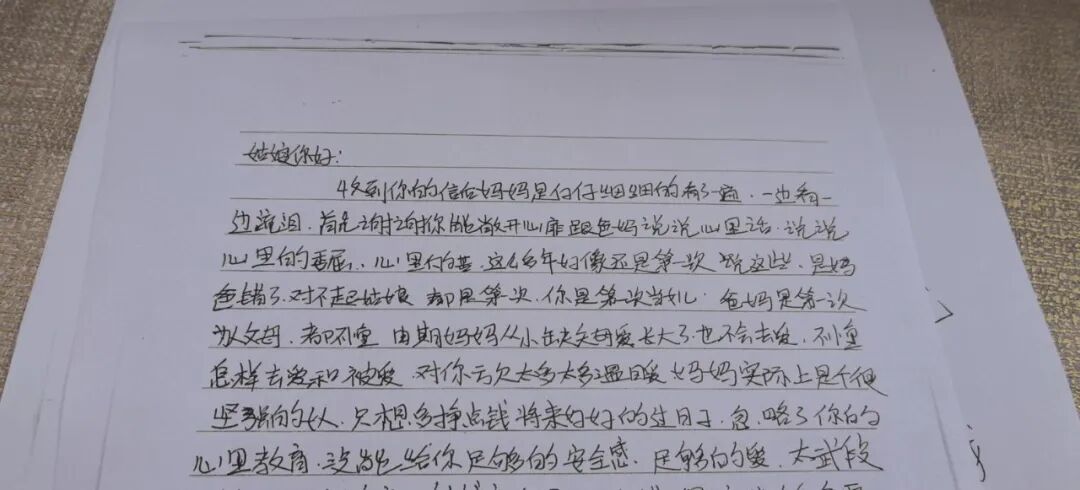 姑娘你好:
收到你的信后妈妈是仔仔细细的看了一遍.一边看一
边流泪.首先谢谢你能敞开心扉跟爸妈说说心里话.说说
心里的委屈.心里的苦.这么多年好像还是第一次说这些.是妈
爸错了.对不起姑娘 都是第一次.你是第一次当儿.爸妈是第一次
为父母.都不懂 由期妈妈从小缺失父母爱长大了也不会去爱.不懂
怎样去爱和被爱 对你亏欠太多太多 妈妈实际上是个很
坚强的人.只想多挣点钱将来好好的过日子.忽略了你的
心里教育.没能给你足够的安全感.足够的爱.太武段